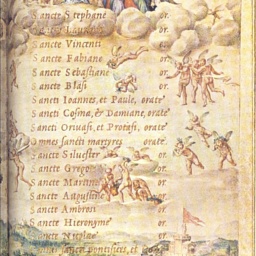 Sancte Stephane or.
Sancte Laurenti or.
Sancte Vincenti or.
Sancte Fabiane or.
Sancte Sebastiane or.
Sancte Blasi or.
Sancti Ioannes, et Paule, orate
Sancti Cosma, & Damiane, orate
Sancti Gruasi, et Protasi, orate
Omnes sancti martyres orate
Sancte Siluester or.
Sancte Gregori or.
Sancte Martine or.
Sancte Augustine or.
Sancte Ambrosi or.
Sancte Hieronyme or.
Sancte Nicolae or.
sancti pontifices, et